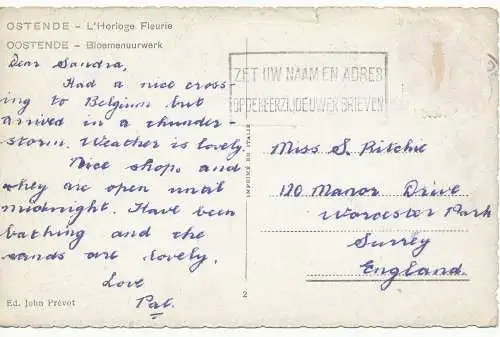 OSTENDE – L'Horloge Fleurie
OOSTENDE – Bloemenuurwerk
Dear Sandra,
Had a nice cross-
ing to Belgium but
arrived in a thunder-
storm. Weather is lovely.
Nice shops, and
they are open until
midnight. Have been
bathing and the
sands are lovely.
Love
Pat.
Ed. John Prévot
ZET UW NAAM EN ADRES
OP DE KEERZIJDE UWER BRIEVEN
IMPRIMÉ EN ITALIE
2
Miss S. Ritchie
120 Manor Drive
Worcester Park
Surrey
England.